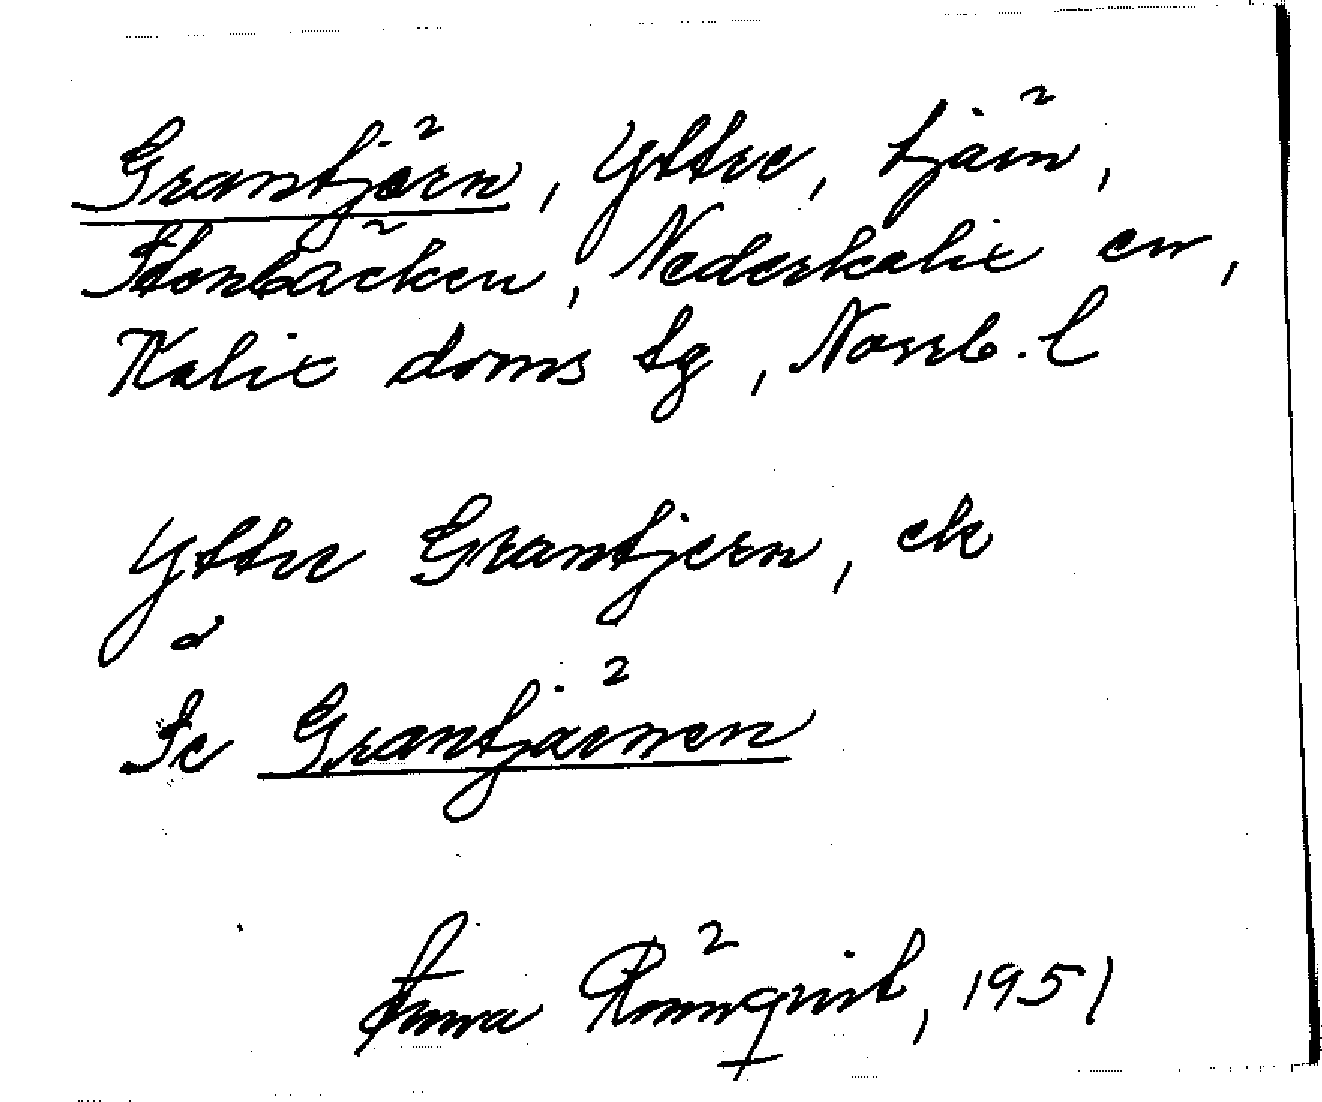 Grantjärn, Yttre, tjärn,
Storbäcken, Nederkalix sn,
Kalix doms tg, Norrb. l
Yttre Grantjern, ek
Se Grantjärnen
Anna Rönnqvist, 1951